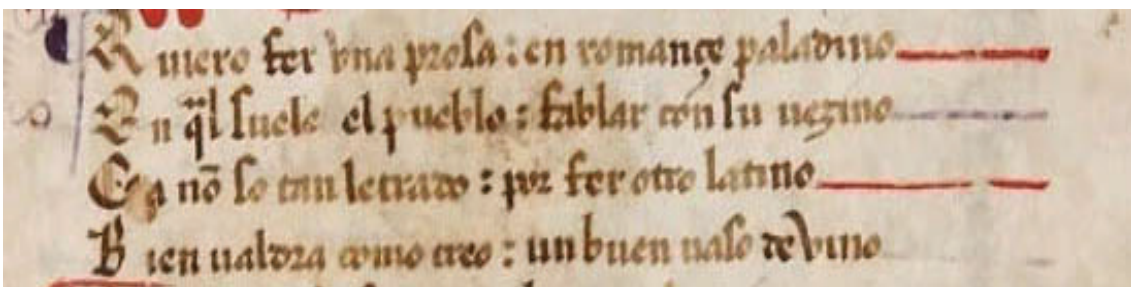 Quiero fer vna prosa : en romançe paladino
En q̄l suele el pueblo : fablar con su uezino
Ca nō so tan letrado : por fer otro latino
Bien ualdra como creo : un buen uaso de vino